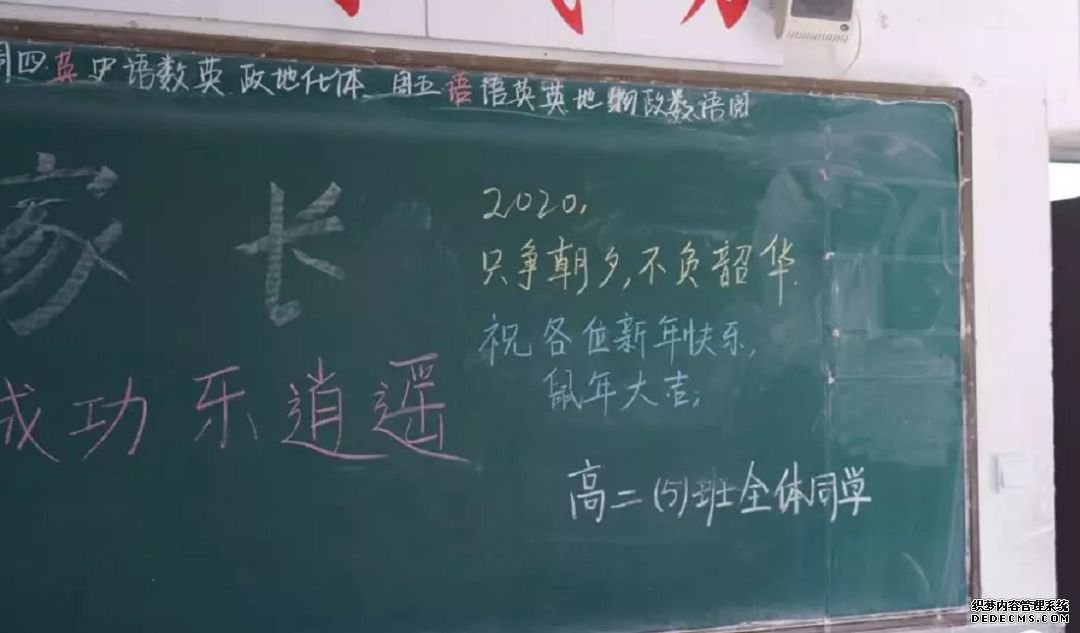 周四英史语数英政地化体 周五语语英英地物政数语阅
家长
成功乐逍遥
2020,
只争朝夕,不负韶华
祝各位新年快乐,
鼠年大吉;
高二(5)班全体同学
织梦内容管理系统
DEDECMS.COM